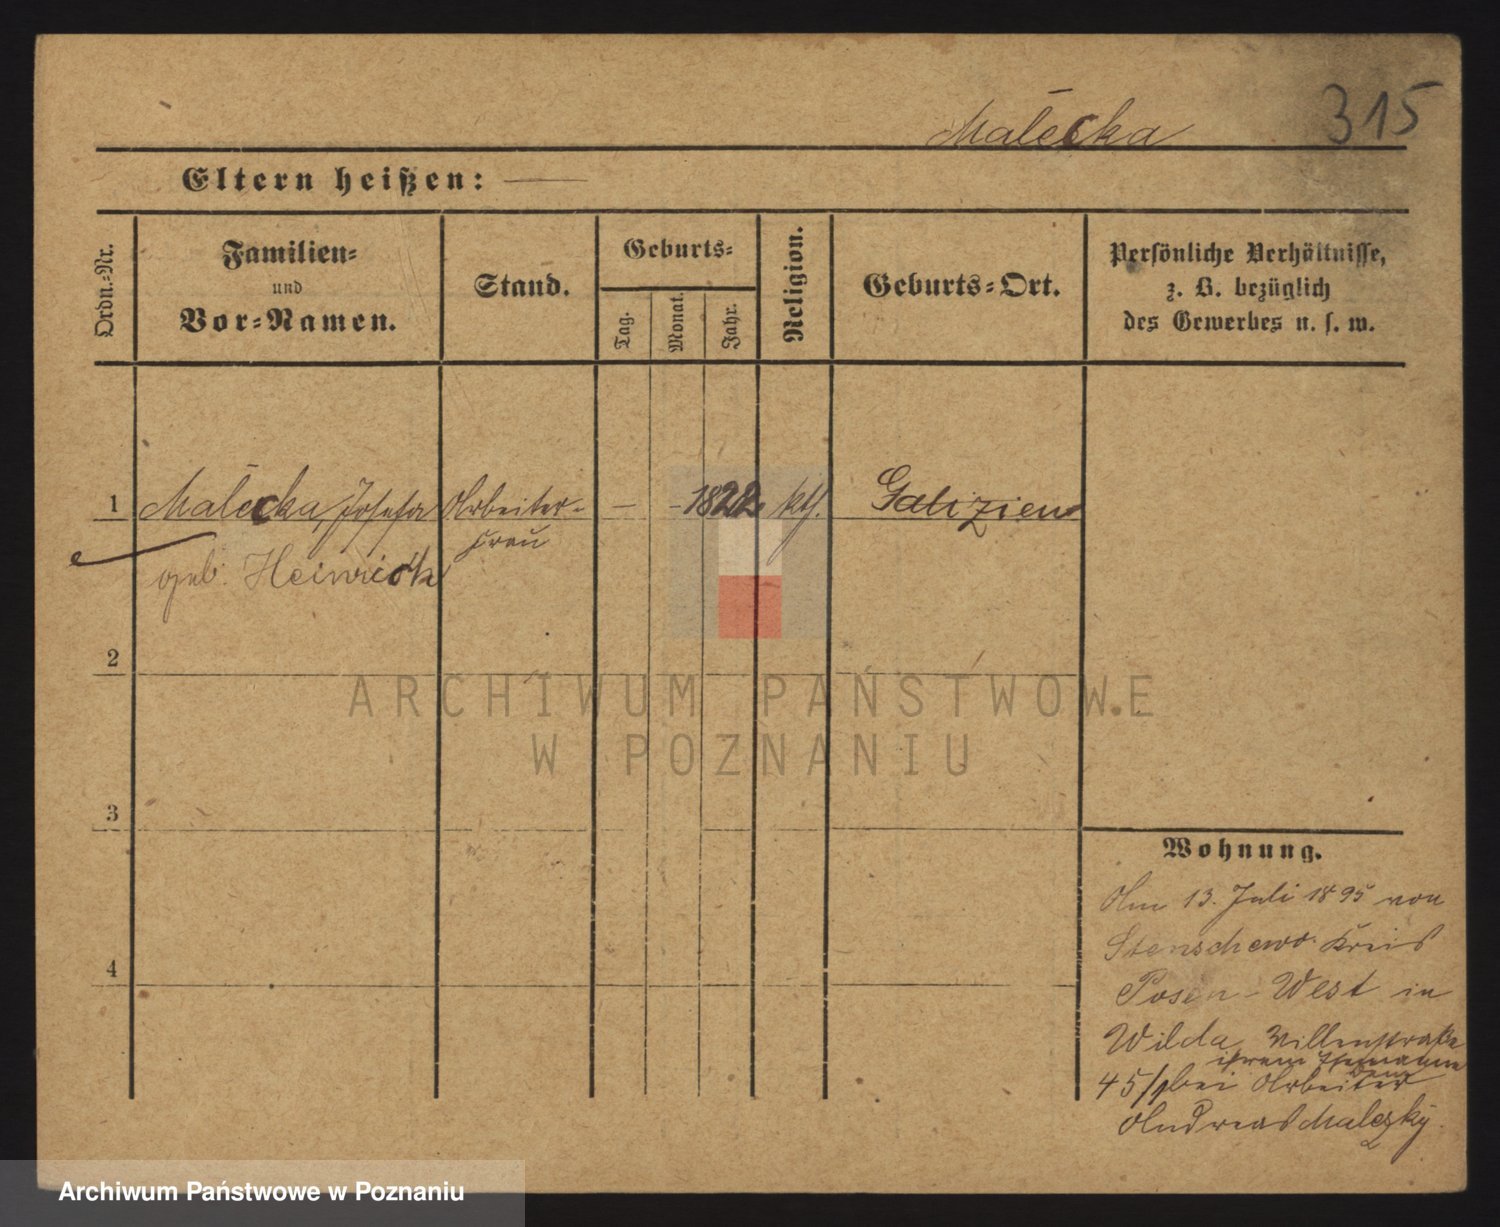 315
Malecka
Eltern heißen: —
Ordn.-Nr.
Familien-
und
Vor-Namen.
Stand.
Geburts-
Tag.
Monat.
Jahr.
Religion.
Geburts-Ort.
Persönliche Verhältnisse,
z. B. bezüglich
des Gewerbes u. s. w.
1 Malecka, Josefa Arbeiter- — - 1822 kth. Galizien
frau
geb. Heinrich
2
3
4
Wohnung.
Am 13. Juli 1895 von
Stenschewo Kreis
Posen-West in
Wilda, Villenstraße
ihrem Ehemanne
dem
45/ bei Arbeiter
Andreas Malezky.
ARCHIWUM PAŃSTWOWE
W POZNANIU
Archiwum Państwowe w Poznaniu